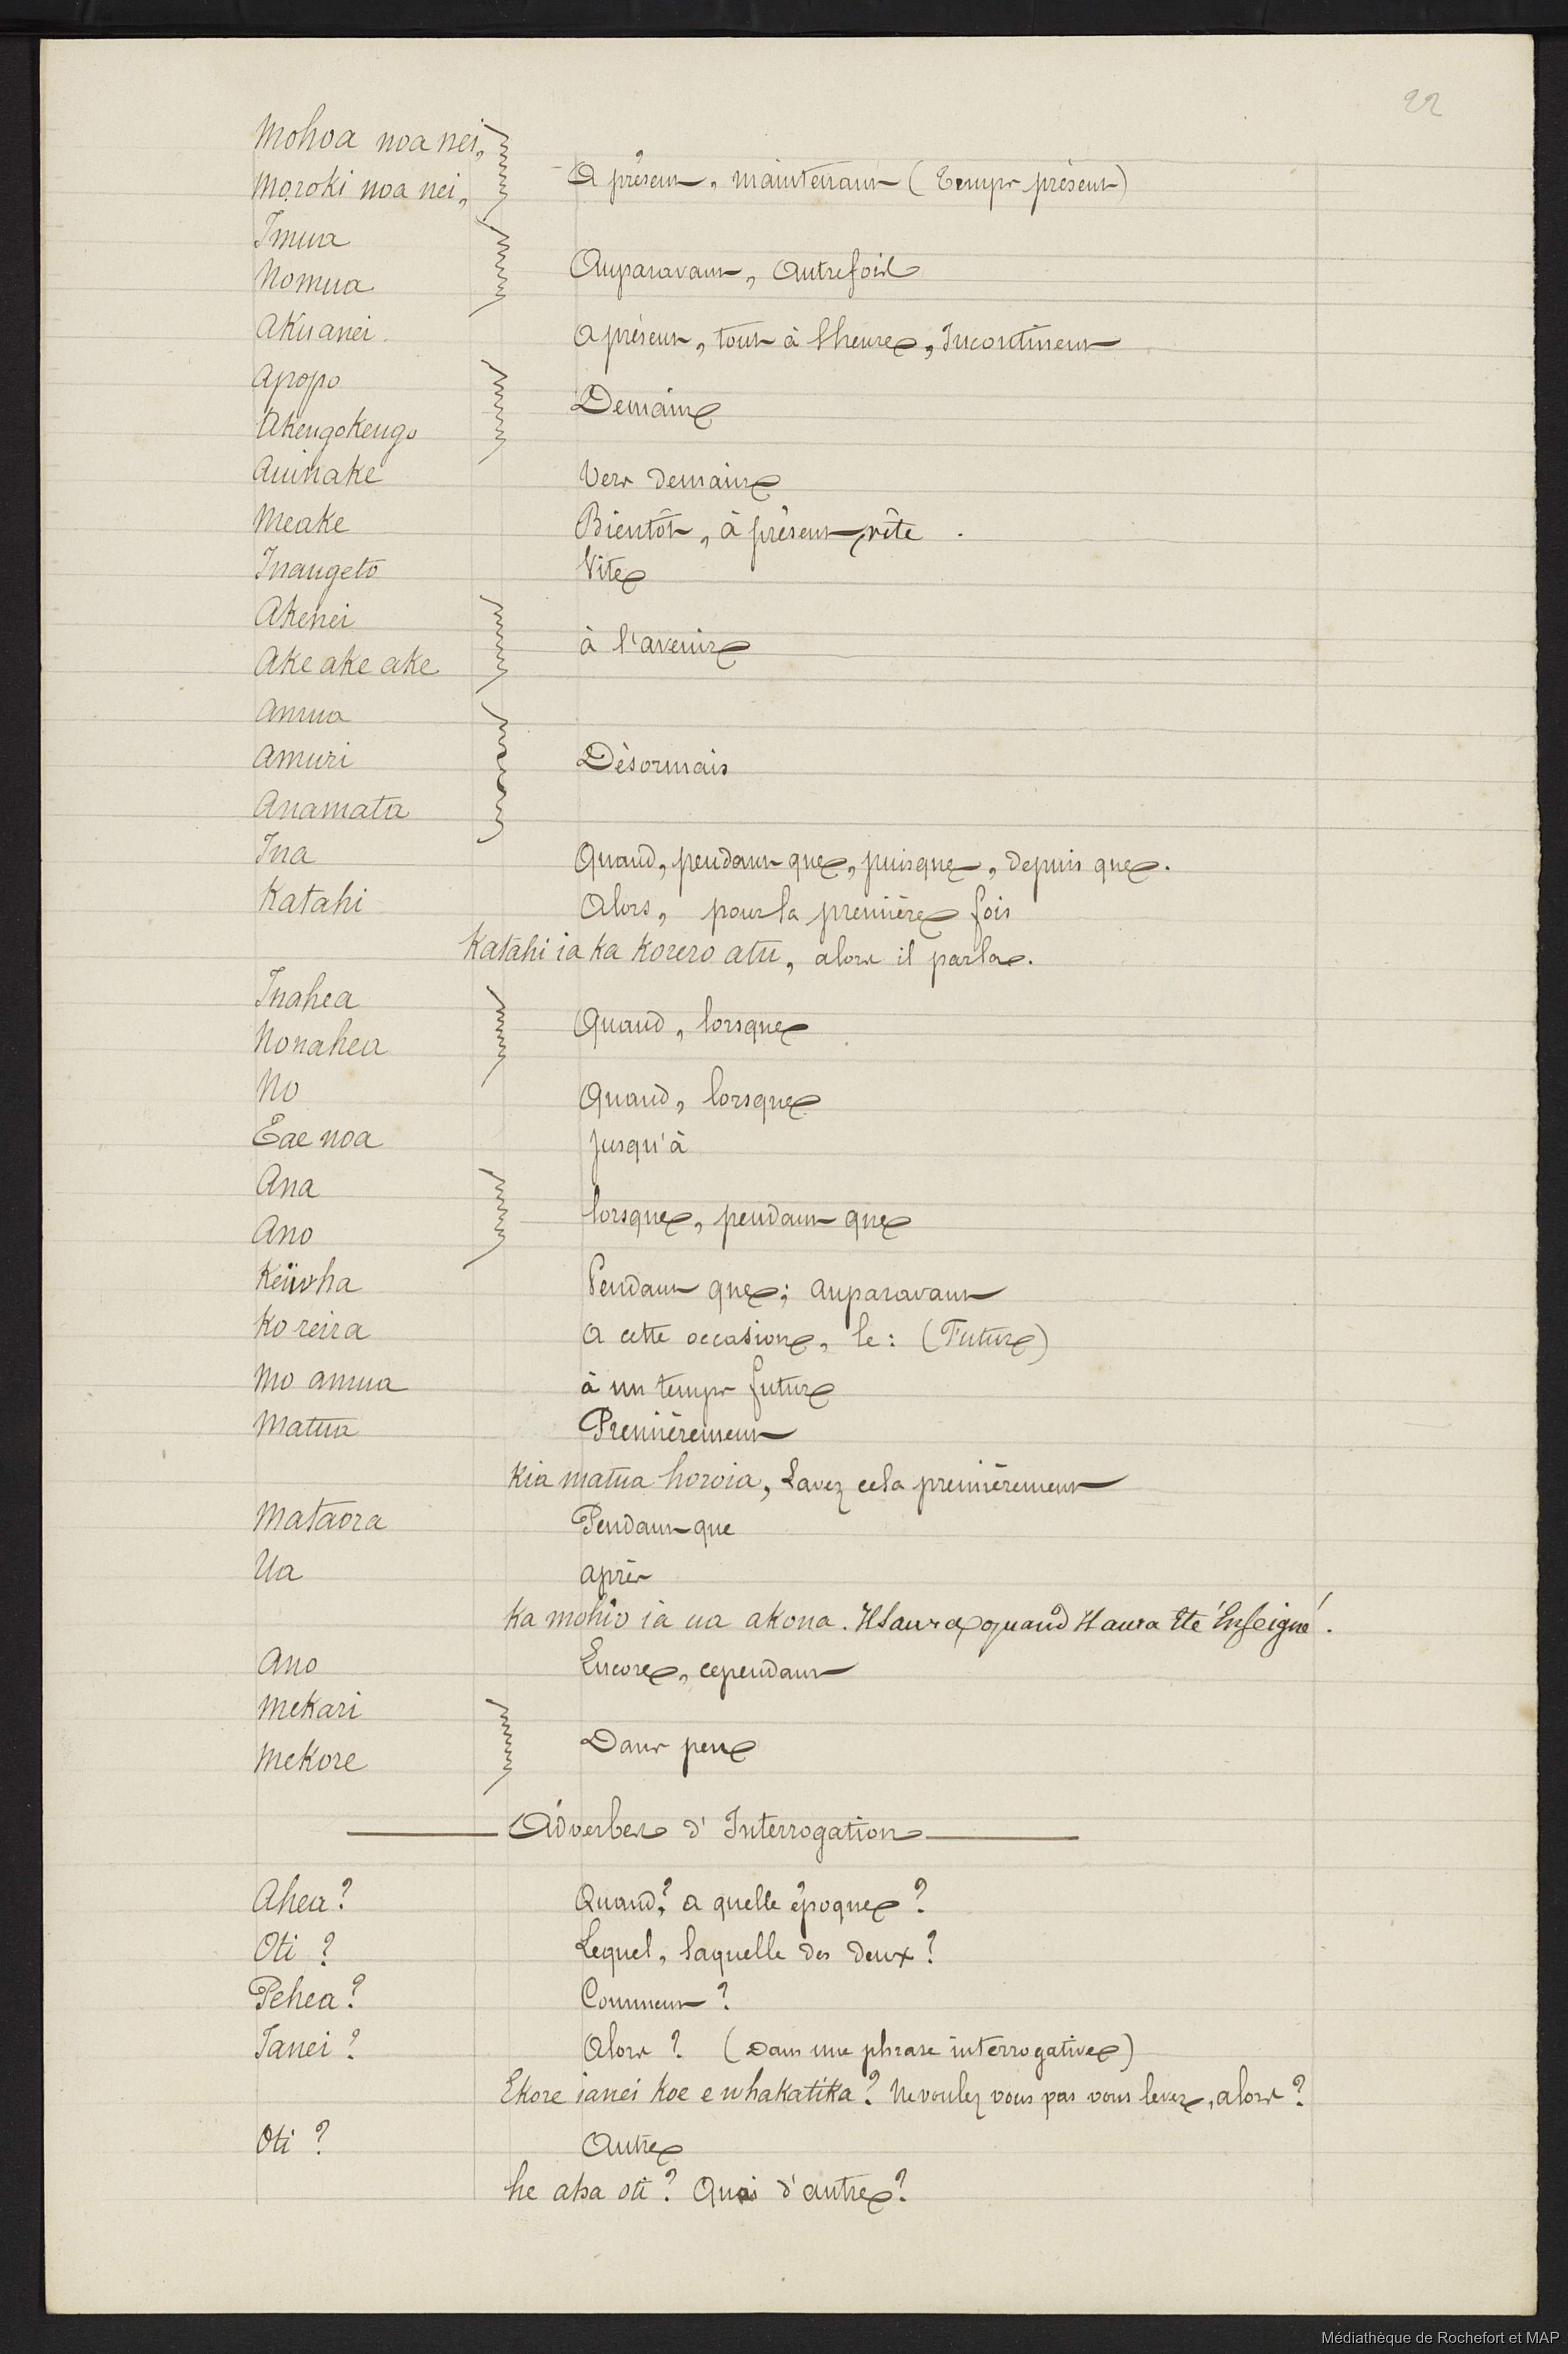 22
Mohoa noa nei,
Moroki noa nei,
A présent, maintenant (Temps présent)
Imua
Nomua
Auparavant, Autrefois
Akuanei.
A présent, tout à l'heure, Incontinent
Apopo
Akengokengo
Demain
Auinake
Vers demain
Meake
Bientôt, à présent, vîte.
Inangeto
Vite
Akenei
Ake ake ake
à l'avenir
Amua
Amuri
Anamata
Désormais
Ina
Quand, pendant que, puisque, depuis que.
Katahi
Alors, pour la première fois
Katahi ia ka korero atu, alors il parla.
Inahea
Nonahea
Quand, lorsque
No
Quand, lorsque
Eae noa
Jusqu'à
Ana
Ano
Lorsque, pendant que
Keiwha
Pendant que; auparavant
Ko reira
A cette occasion, le: (Futur)
Mo amua
à un temps futur
Matua
Premièrement
Kia matua horoia, Lavez cela premièrement
Mataora
Pendant que
Ua
après
Ka mohio ia ua akona. Il saura quand Il aura Eté Enseigné.
Ano
Encore, cependant
Mekari
Mekore
Dans peu
Adverbes d'Interrogation
Ahea?
Quand? a quelle époque?
Oti ?
Lequel, laquelle des deux?
Pehea?
Comment ?
Ianei ?
Alors ? (Dans une phrase interrogative)
Ekore ianei koe e whakatika? Ne voulez vous pas vous lever, alors ?
Oti ?
Autre
he aha oti? Quoi d'autre?
Médiathèque de Rochefort et MAP